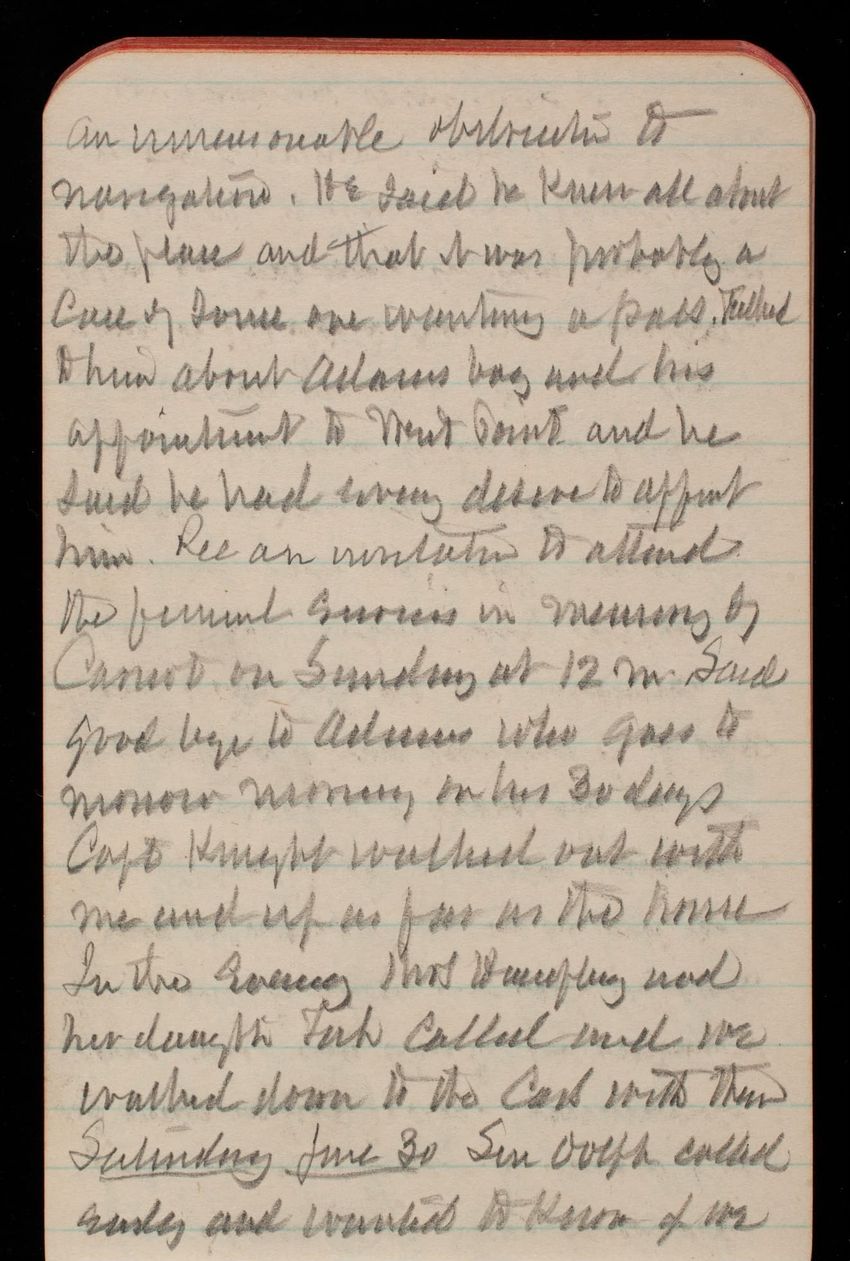 an unreasonable obstruction to
navigation. He said he knew all about
the place and that it was probably a
Case of some one wanting a pass. Talked
to him about Adams boy and his
appointment to West Point and he
said he had every desire to appoint
him. Rec an invitation to attend
the funeral services in memory of
Carnot on Sunday at 12 m. Said
good bye to Adams who goes to
morrow morning on his 30 days
Capt Knight walked out with
me and up as far as the house
In the Evening Mrs Humphrey and
her daughter called and we
walked down to the Cars with them
Saturday June 30 Sen Dolph called
early and wanted to know if we